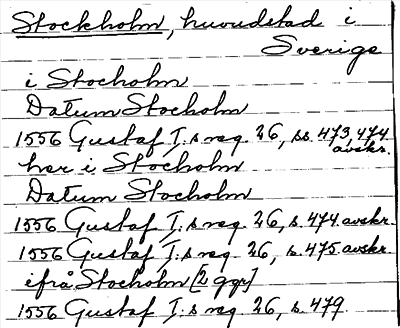 Stockholm, huvudstad i
Sverige
i Stocholm
Datum Stocholm
1556 Gustaf I:s reg. 26, ss. 473, 474
avskr.
her i Stocholm
Datum Stocholm
1556 Gustaf I:s reg. 26, s. 474 avskr.
1556 Gustaf I:s reg. 26, s. 475 avskr.
ifrå Stocholm [2 ggr]
1556 Gustaf I:s reg. 26, s. 479.